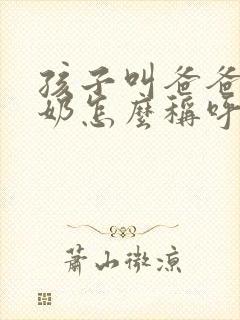 孩子叫爸爸
奶怎麼稱呼
蕭山微涼